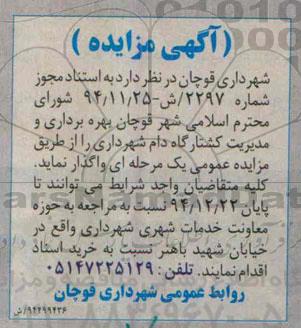 ( آگهی مزایده )
شهرداری قوچان در نظر دارد به استناد مجوز
شماره ۲۲۹۷/ش-۹۴،۱۱،۲۵ شورای
محترم اسلامی شهر قوچان بهره برداری و
مدیریت کشتارگاه دام شهرداری را از طریق
مزایده عمومی یک مرحله ای واگذار نماید.
کلیه متقاضیان واجد شرایط می توانند تا
پایان ۹۴،۱۲،۲۲ نسبت به مراجعه به حوزه
معاونت خدمات شهری شهرداری واقع در
خیابان شهید باهنر نسبت به خرید اسناد
اقدام نمایند. تلفن : ۰۵۱۴۷۲۲۵۱۲۹
روابط عمومی شهرداری قوچان
۹۴۲۹۹۴۳۶/ش